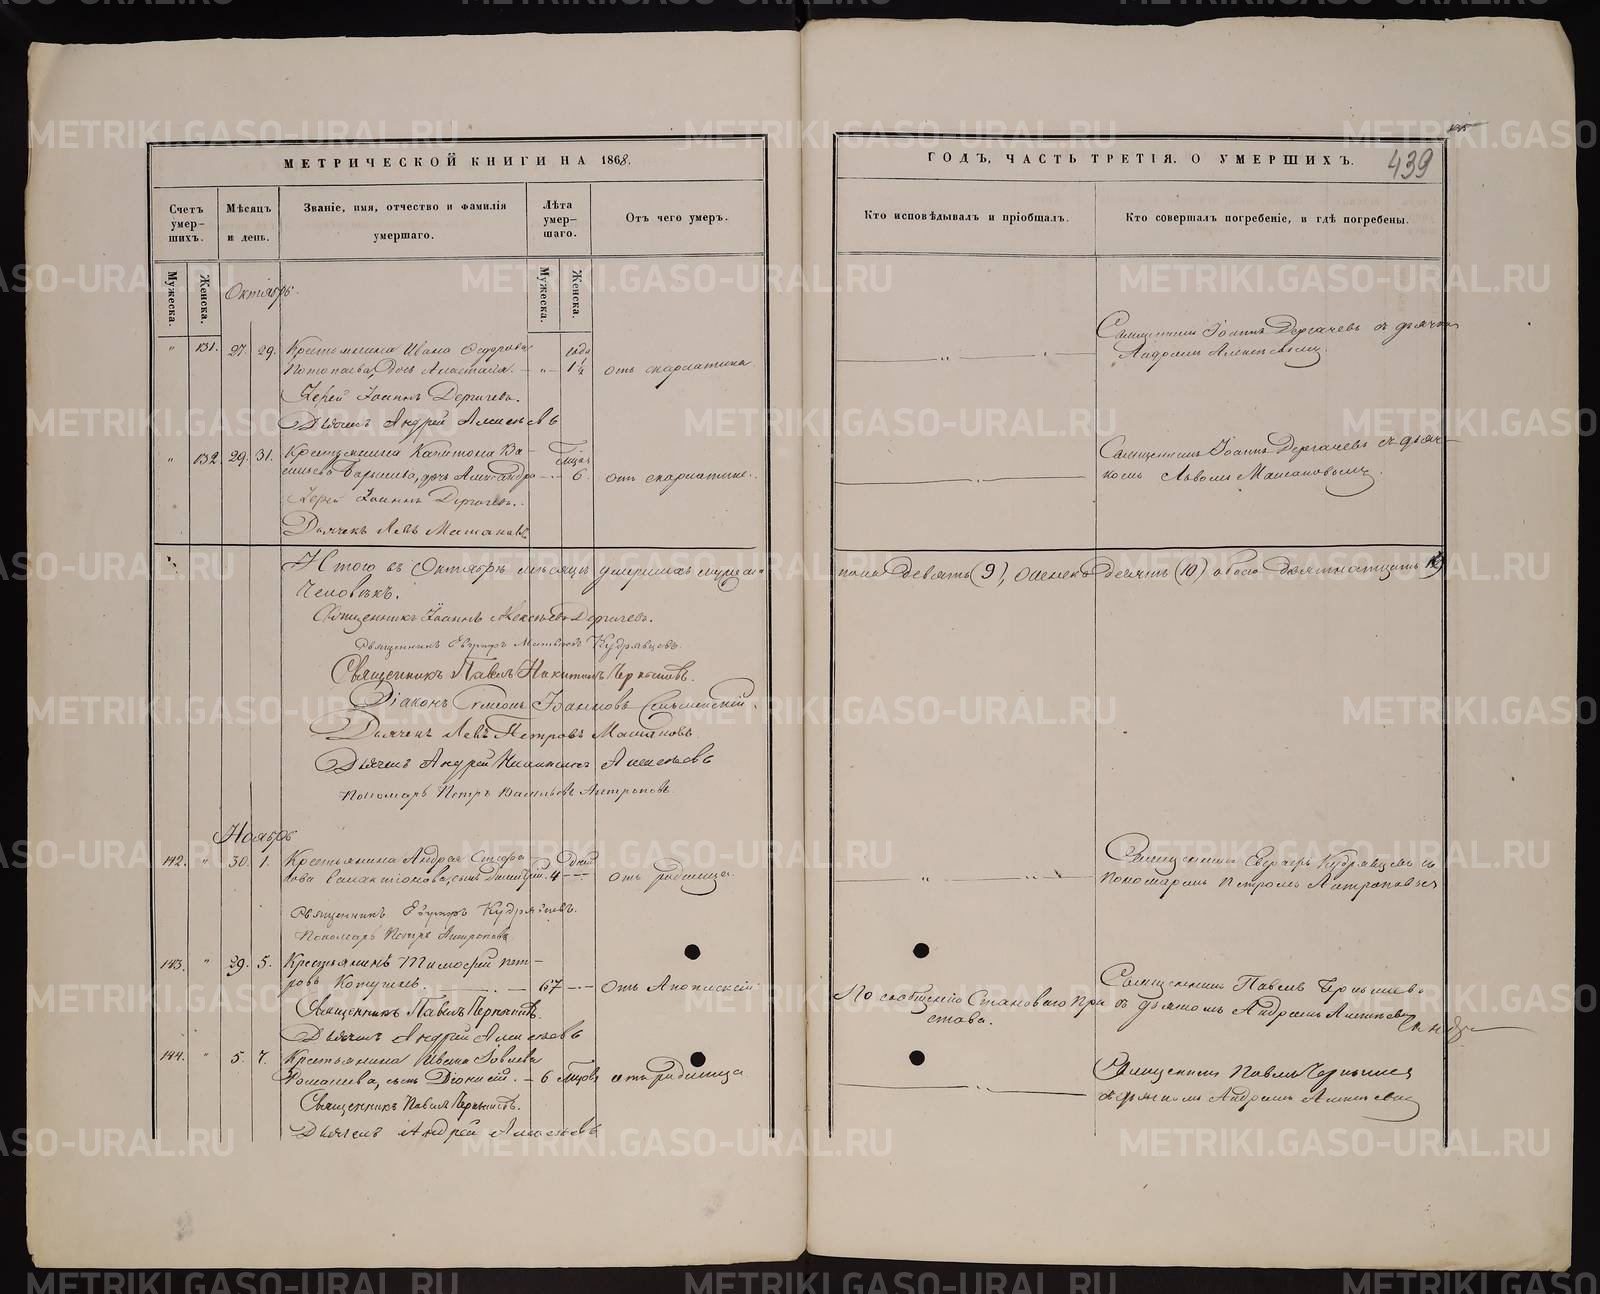 МЕТРИЧЕСКОЙ КНИГИ НА 1868.
Счетъ умер-
шихъ.
Мѣсяцъ
и день.
Званіе, имя, отчество и фамилія
умершаго.
Лѣта
умер-
шаго.
Отъ чего умеръ.
Мужеска.
Женска.
Мужеска.
Женска.
Октябрь.
" 131. 27. 29. Крестьянина Ивана Ѳедорова года
дочь Анастасія. — " — 1½ отъ скарлатины
Іерей Іоаннъ Дергачевъ.
Дьячекъ Андрей Алексѣевъ
" 132. 29. 31. Крестьянина Капитона Ва-
дочь Александра — 6. отъ скарлатины.
Іерей Іоаннъ Дергачевъ.
Дьячекъ Левъ
Итого въ Октябрѣ мѣсяцѣ умершихъ мужес-
человѣкъ.
Священникъ Іоаннъ Алексѣевъ Дергачевъ.
Священникъ Евграфъ Кудрявцевъ.
Священникъ Павелъ Никитинъ Чернышевъ.
Діаконъ Іоанновъ
Дьячекъ Левъ Петровъ
Дьячекъ Андрей Алексѣевъ
Пономарь Петръ Васильевъ Антроповъ.
Ноябрь
142. " 30. 1. Крестьянина Андрея дней
сынъ Димитрій. 4 — отъ родимца.
Священникъ Евграфъ Кудрявцевъ.
Пономарь Петръ Антроповъ.
143. " 29. 5. Крестьянинъ Тимофей Пет-
ровъ — 67 — Отъ Апоплексіи
Священникъ Павелъ Чернышевъ.
Дьячекъ Андрей Алексѣевъ
144. " 5. 7. Крестьянина Ивана
сынъ Діонисій. — 6 отъ родимца
Священникъ Павелъ Чернышевъ.
Дьячекъ Андрей Алексѣевъ
ГОДЪ, ЧАСТЬ ТРЕТІЯ. О УМЕРШИХЪ.
439
Кто исповѣдывалъ и пріобщалъ.
Кто совершалъ погребеніе, и гдѣ погребены.
Священникъ Іоаннъ Дергачевъ съ дьячко
Андреемъ Алексѣевымъ.
Священникъ Іоаннъ Дергачевъ съ дьяч-
комъ Львомъ
пола девять (9), женска десять (10) а всего девятнадцать (19)
Священникъ Евграфъ Кудрявцевъ съ
пономаремъ Петромъ Антроповымъ
По сообщенію Становаго При
става.
Священникъ Павелъ Чернышевъ
съ дьячкомъ Андреемъ Алексѣевы
Священникъ Павелъ Чернышевъ
съ дьячкомъ Андреемъ Алексѣевы
METRIKI.GASO-URAL.RU